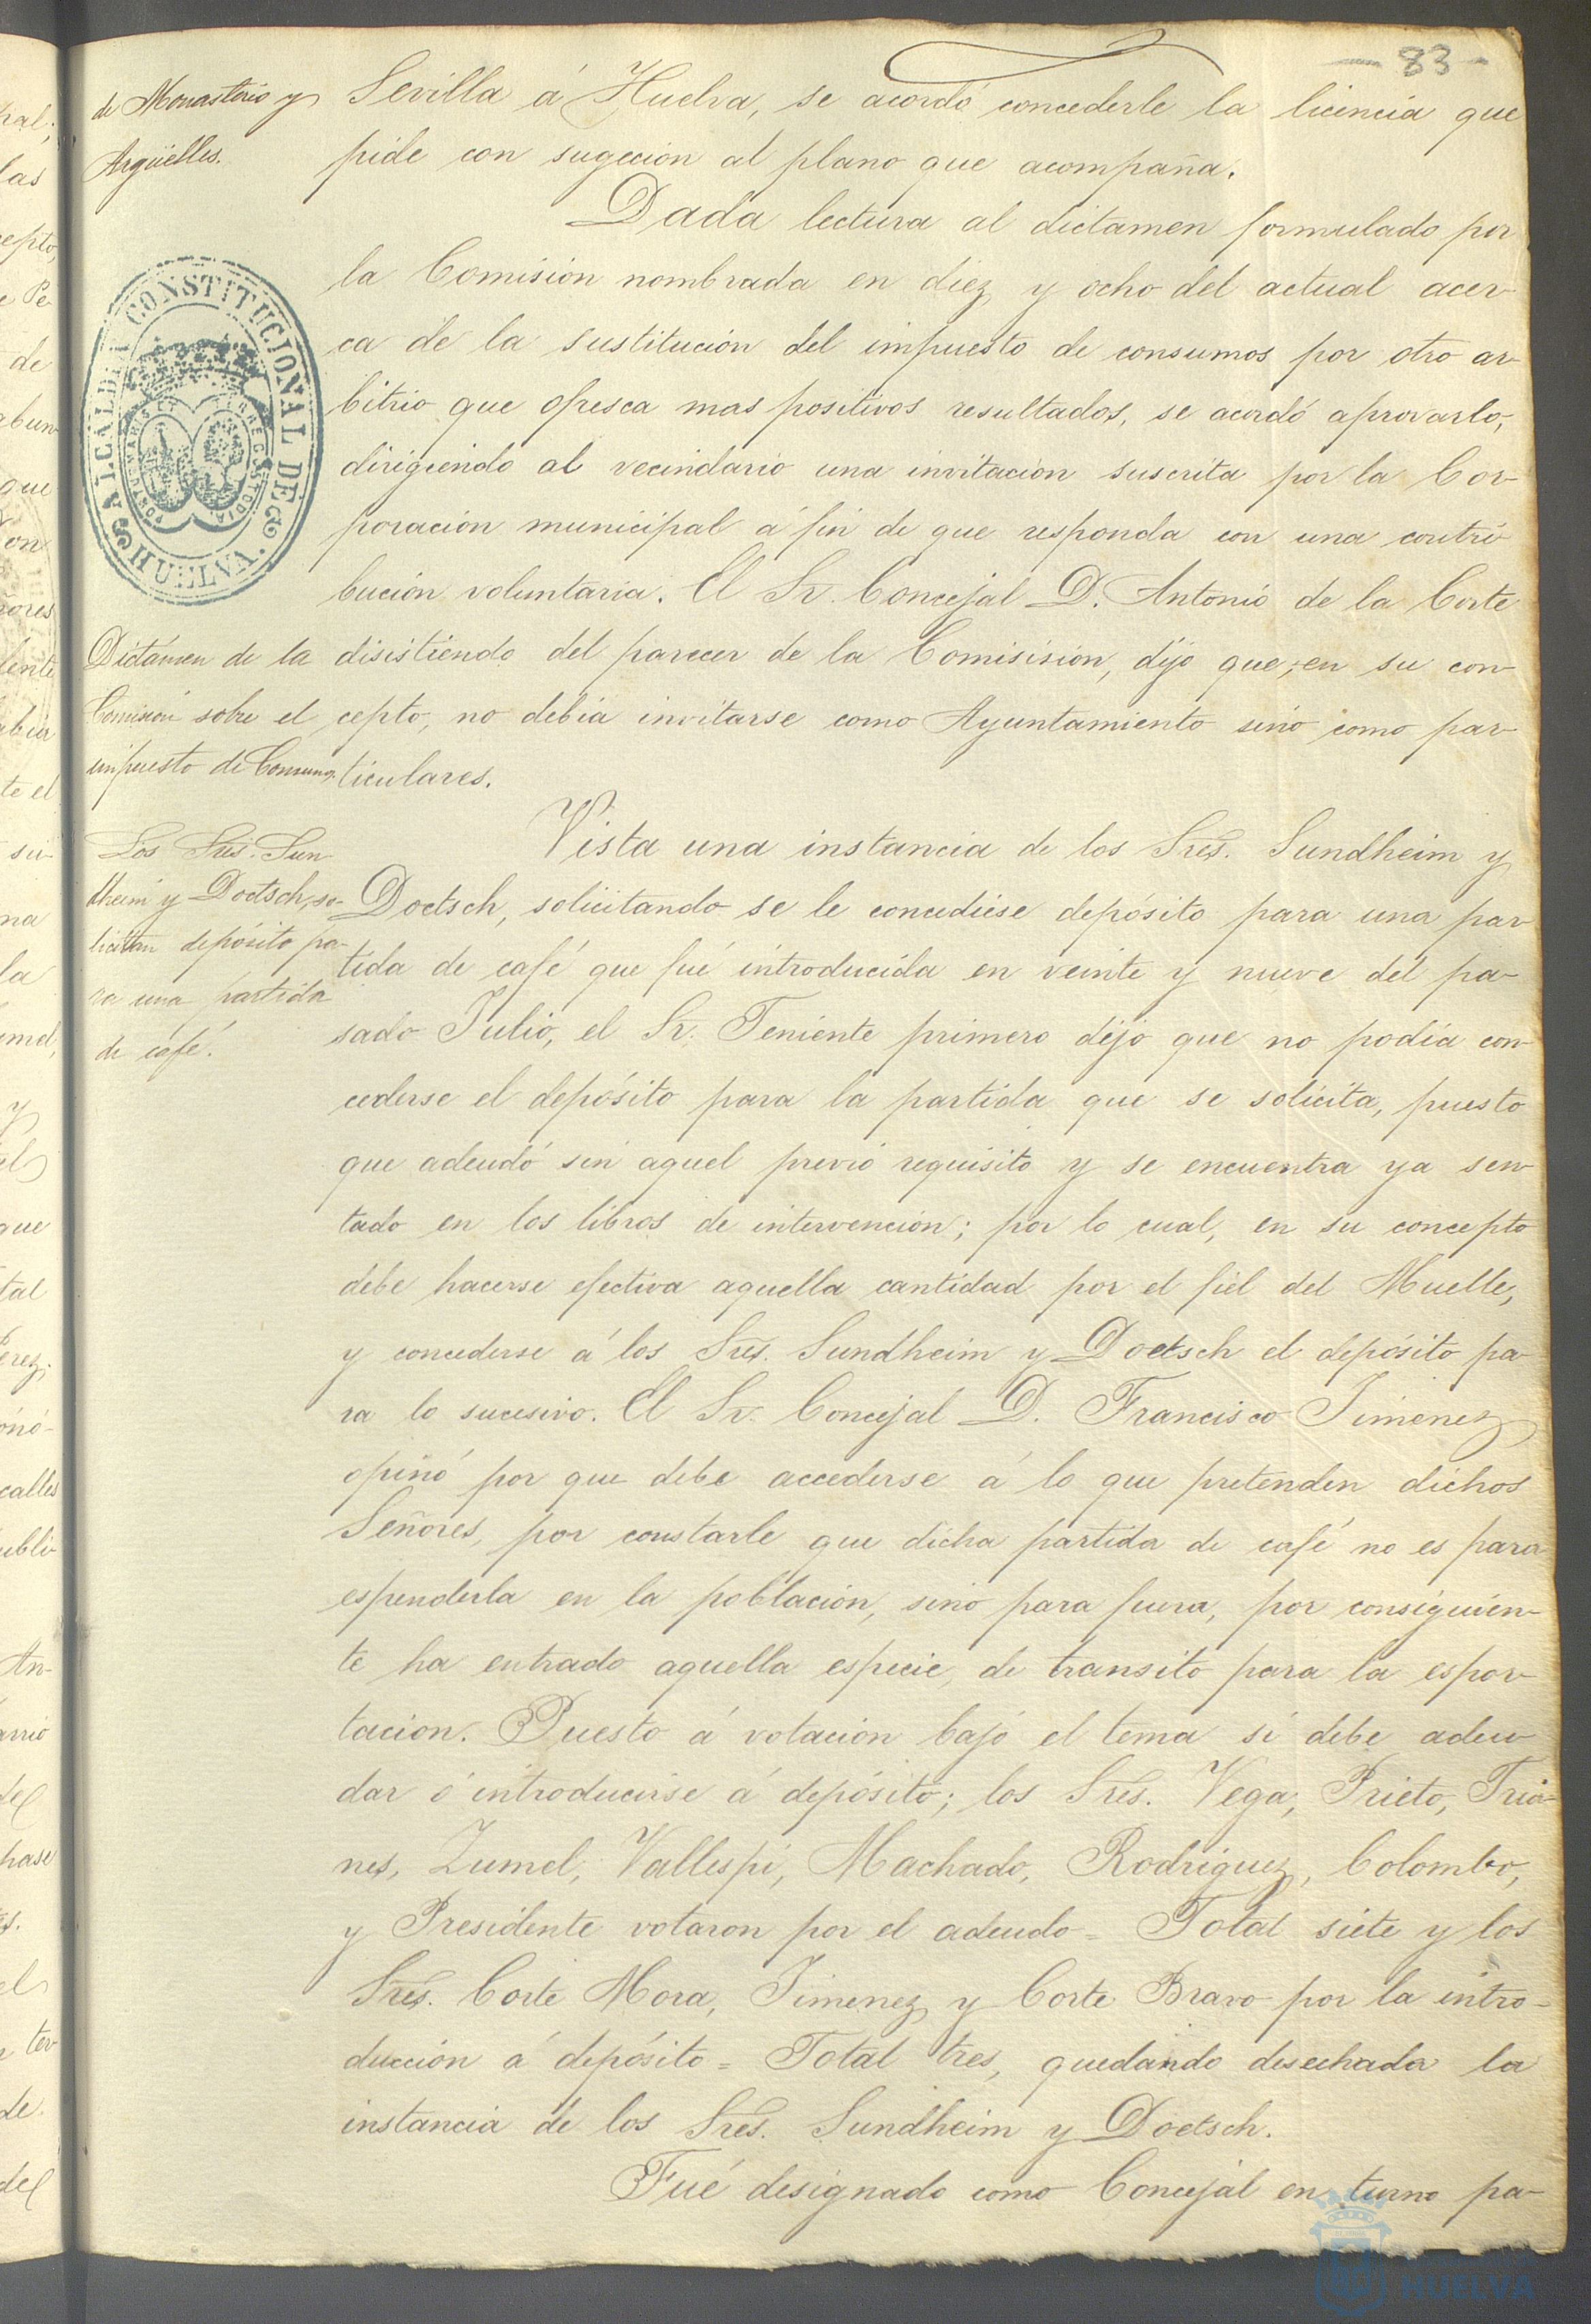 83
de Monasterio y
Argüelles.
Sevilla á Huelva, se acordó concederle la licencia que
pide con sugeción al plano que acompaña.
Dada lectura al dictamen formulado por
la Comisión nombrada en diez y ocho del actual acer-
ca de la sustitución del impuesto de consumos por otro ar-
bitrio que ofresca mas positivos resultados, se acordó aprovarlo,
dirigiendo al vecindario una invitación suscrita por la Cor-
poración municipal á fin de que responda con una contri
bución voluntaria. El Sr. Concejal D. Antonio de la Corte
disistiendo del parecer de la Comisisión, dijo que, en su con-
cepto, no debia invitarse como Ayuntamiento sinó como par-
ticulares.
ALCALDIA CONSTITUCIONAL DE
HUELVA.
PORTUS MARIS ET TERRE CUSTODIA
Dictámen de la
Comisión sobre el
impuesto de Consumos.
Los Sres. Sun-
dheim y Doetsch, so-
licitan depósito pa-
ra una partida
de café.
Vista una instancia de los Sres. Sundheim y
Doetsch, solicitando se le concediese depósito para una par
tida de café que fué introducida en veinte y nueve del pa-
sado Julio, el Sr. Teniente primero dijo que no podia con-
cederse el depósito para la partida que se solicita, puesto
que adeudó sin aquel previo requisito y se encuentra ya sen-
tado en los libros de intervención; por lo cual, en su concepto
debe hacerse efectiva aquella cantidad por el fiel del Muelle,
y concederse á los Sres. Sundheim y Doetsch el depósito pa-
ra lo sucesivo. El Sr. Concejal D. Francisco Jimenez
opinó por que debe accederse á lo que pretenden dichos
Señores, por constarle que dicha partida de café no es para
espenderla en la población, sinó para fuera, por consiguien-
te ha entrado aquella especie, de transito para la espor-
tacion. Puesto á votación bajo el tema si debe adeu-
dar ó introducirse á depósito; los Sres. Vega, Prieto, Tria-
nes, Zumel, Vallespi, Machado, Rodriguez, Colombo,
y Presidente votaron por el adeudo = Total siete y los
Sres. Corte Mora, Jimenez y Corte Bravo por la intro-
ducción á depósito = Total tres, quedando desechada la
instancia de los Sres. Sundheim y Doetsch.
Fué designado como Concejal en turno pa-
HUELVA